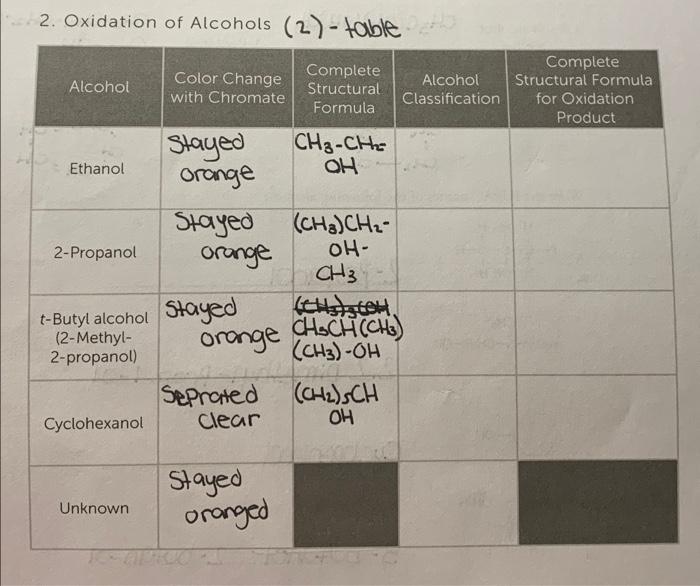 2. Oxidation of Alcohols (2)-table
Alcohol
Color Change
with Chromate
Complete
Structural
Formula
Alcohol
Classification
Complete
Structural Formula
for Oxidation
Product
Ethanol
Stayed
orange
CH3-CH2-
OH
2-Propanol
Stayed
orange
(CH3)CH2-
OH-
CH3
t-Butyl alcohol
(2-Methyl-
2-propanol)
Stayed
orange
(CH3)3COH
CH3CH(CH3)
(CH3)-OH
Cyclohexanol
Seprated
clear
(CH2)5CH
OH
Unknown
Stayed
oranged